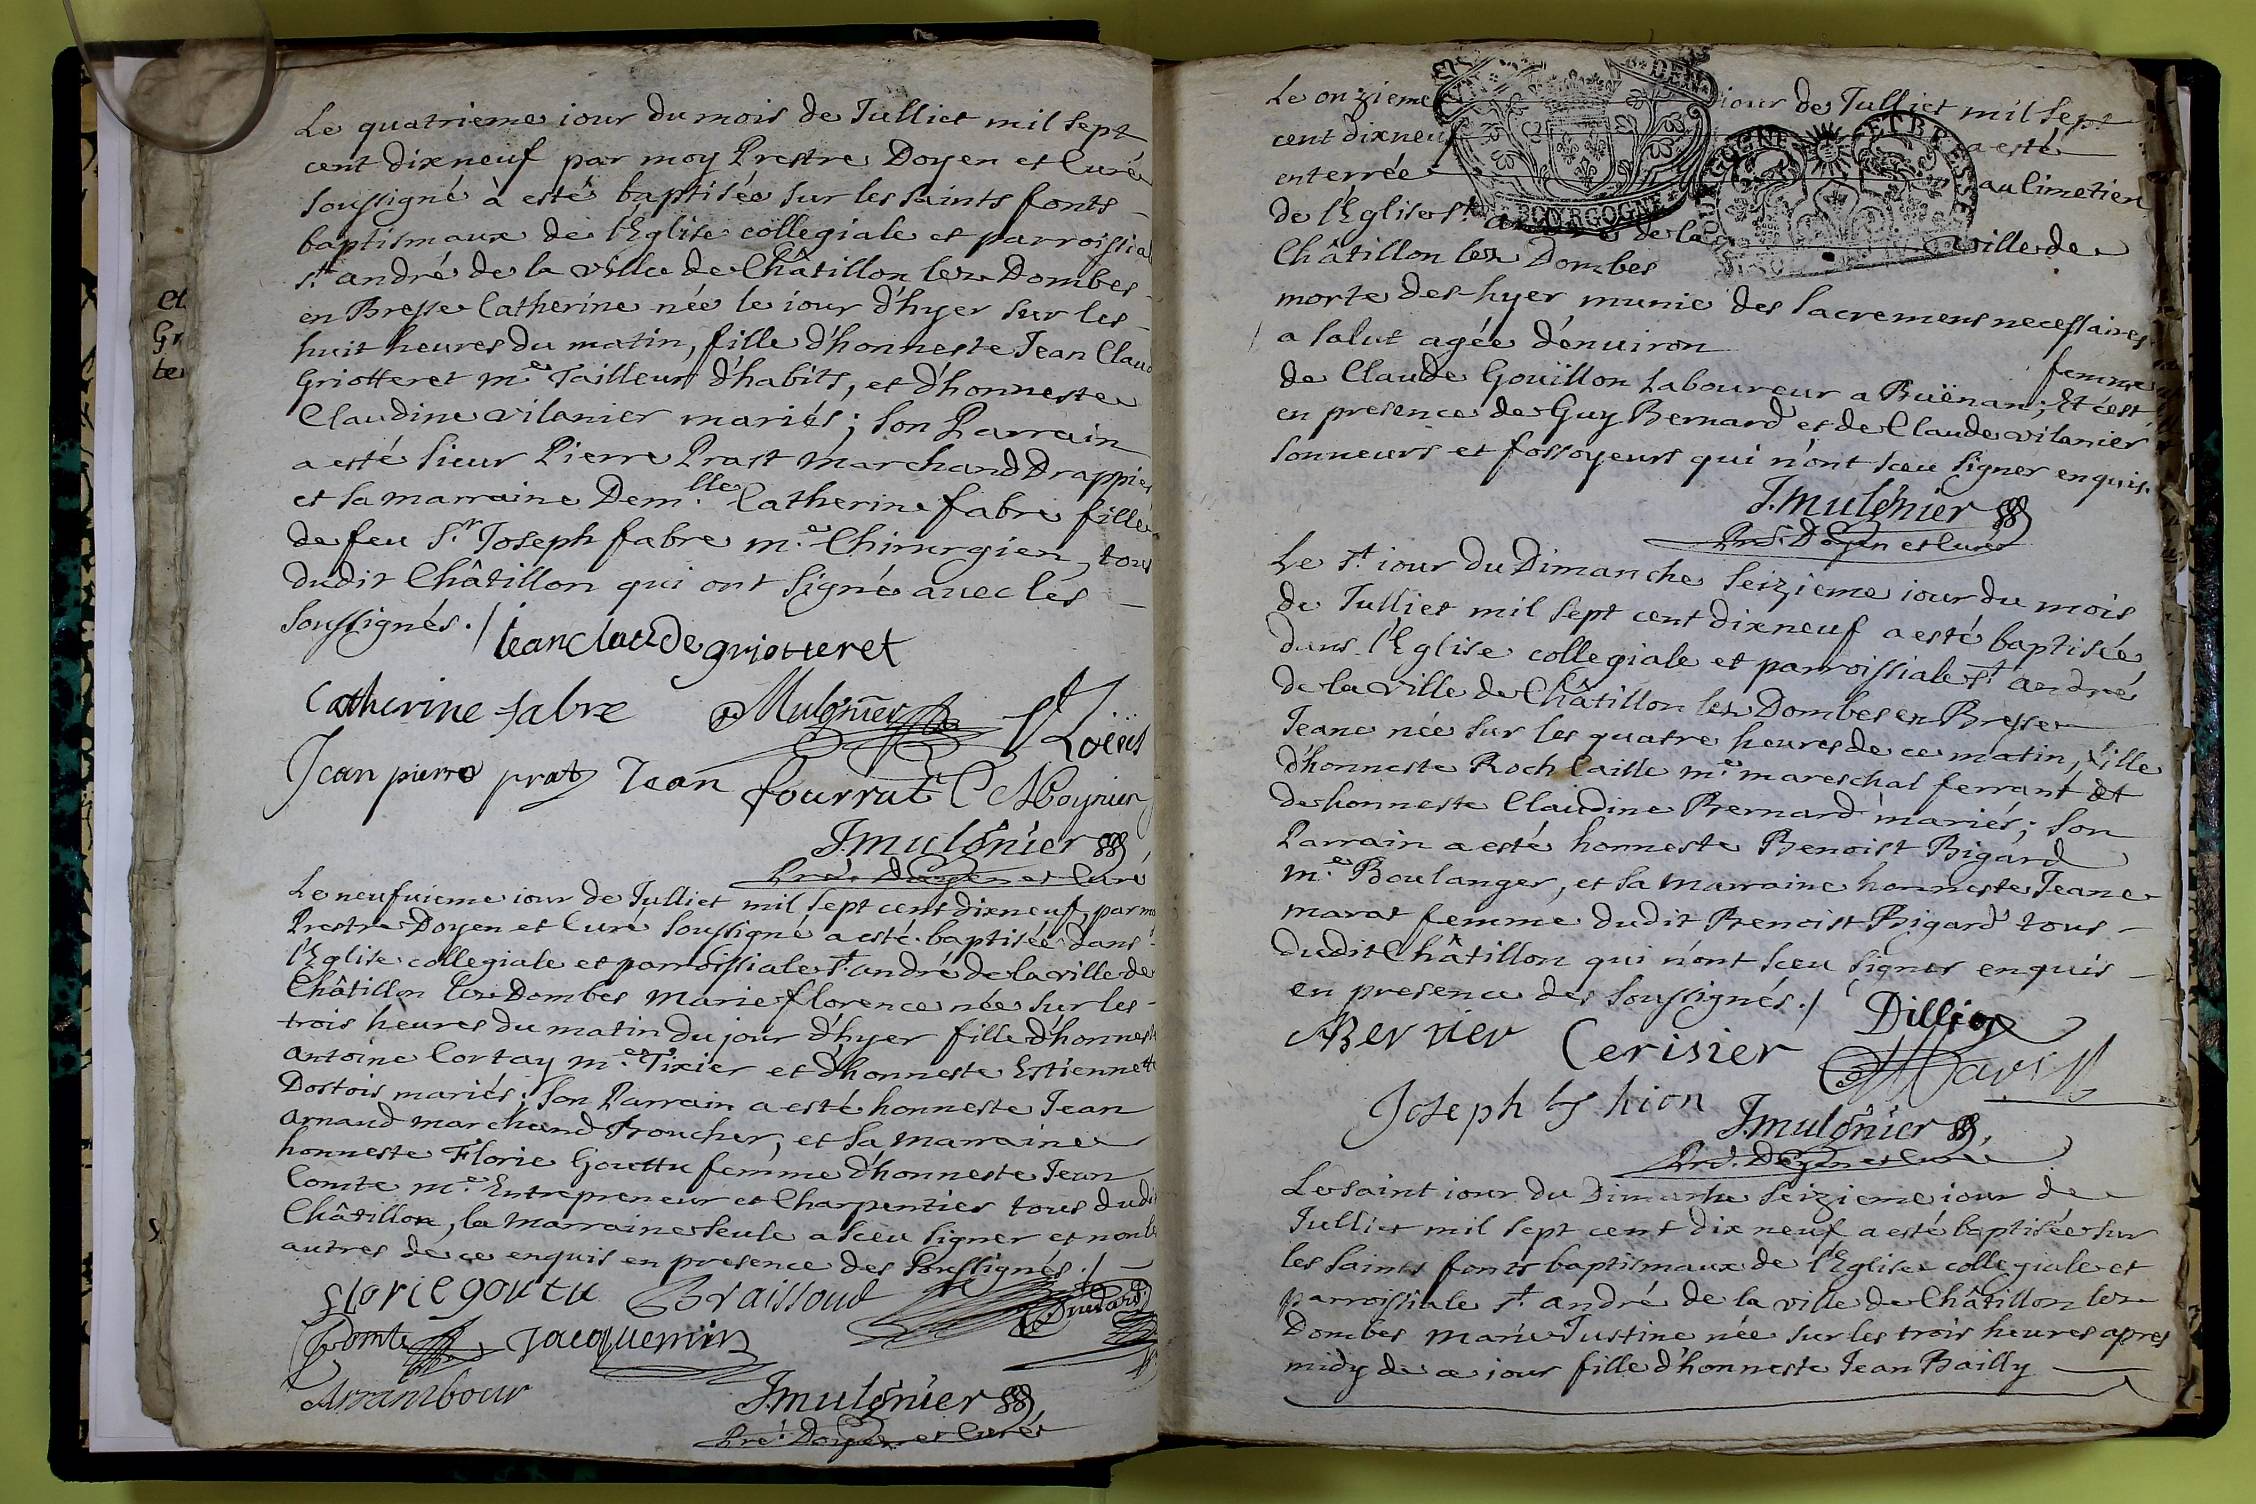 Le quatrieme iour du mois de Julliet mil sept
cent dixneuf par moy Prestre Doyen et Curé
soussigné à esté baptisée sur les saints fonts
baptismaux de l'Eglise collegiale et parroissial
St. andré de la ville de Châtillon lez Dombes
en Bresse Catherine née le iour d'hyer sur les
huit heures du matin, fille d'honneste Jean Claud
Griotteret me. Tailleur d'habits, et d'honneste
Claudine vilanier mariés; son Parrain
a esté sieur Pierre Prast marchand Drappier
et sa marraine Demlle. Catherine fabre fille
de feu Sr. Joseph fabre me. Chirurgien, tous
dudit Châtillon qui ont signé avec les
soussignés./.
Jean claude griotteret
Catherine fabre Mulgnier
Jean pierre prat Jean fourrat C Moynier
J. mulgnier
Pre. Doyen et Curé
Le neufvieme iour de Julliet mil sept cent dixneuf, par moy
Prestre Doyen et Curé soussigné a esté baptisée dans
l'Eglise collegiale et parroissiale St andré de la ville de
Châtillon lez Dombes Marie florence née sur les
trois heures du matin du jour d'hyer fille d'honneste
antoine Cortay me. Tixier et d'honneste Estiennette
Dostois mariés; son Parrain a esté honneste Jean
arnaud marchand Troucher, et sa marraine
honneste Florie Gouttu femme d'honneste Jean
Comte me. Entrepreneur et Charpentier tous dudit
Châtillon, la marraine seule a sceu signer et non les
autres de ce enquis en presence des soussignés./.
florie goutu Braissoud
Comte Jacquemin
Arrambour
J. mulgnier
Pre. Doyen et Curé
et
Gr
te
Le onzieme iour de Julliet mil sept
cent dixneuf a esté
enterrée au Cimetier
de l'Eglise St. andré de la ville de
Châtillon lez Dombes
morte des hyer munie des sacremens necessaires
a salut agée d'énuiron
femme
de Claude Gouïllon Laboureur a Buënan; Et c'est
en presence de Guy Bernard et de Claude vilanier
sonneurs et fossoyeurs qui n'ont sceu signer enquis.
J. mulgnier
Pre. Doyen et Curé
BOURGOGNE
ET BRESSE
Le St. iour du Dimanche seizieme iour du mois
de Julliet mil sept cent dixneuf a esté baptisée
dans l'Eglise collegiale et parroissiale St andré
de la ville de Châtillon lez Dombes en Bresse
Jeane née sur les quatre heures de ce matin, fille
d'honneste Roch Caille me. mareschal ferrant Et
de honneste Claudine Bernard mariés; son
Parrain a esté honneste Benoist Bigard
me. Boulanger, et sa marraine honneste Jeane
marat femme dudit Benoist Bigard tous
dudit Châtillon qui n'ont sceu signer enquis
en presence des soussignés./.
Bernier Cerisier Dillion
Joseph
J. mulgnier
Pre. Doyen et Curé
Le saint iour du Dimanche seizieme iour de
Julliet mil sept cent dix neuf a esté baptisée sur
les saints fonts baptismaux de l'Eglise collegiale et
parroissiale St. andré de la ville de Châtillon lez
Dombes marie Justine née sur les trois heures apres
midy de ce iour fille d'honneste Jean Bailly